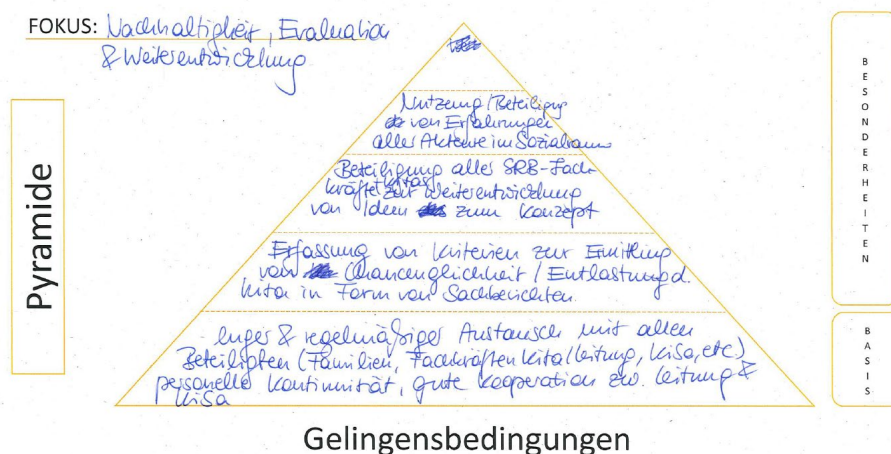 FOKUS: Nachhaltigkeit, Evaluation
& Weiterentwicklung
Pyramide
Nutzung/Beteiligung
von Erfahrungen
aller Akteure im Sozialraum
Beteiligung aller SRB-Fach-
kräfte Kitas zur Weiterentwicklung
von Ideen zum Konzept
Erfassung von Kriterien zur Ermittlung
von Chancengleichheit / Entlastung d.
Kita in Form von Sachberichten
enger & regelmäßiger Austausch mit allen
Beteiligten (Familien, Fachkräften Kita/Leitung, KiSa, etc.)
personelle Kontinuität, gute Kooperation zw. Leitung &
KiSa
BESONDERHEITEN
BASIS
Gelingensbedingungen